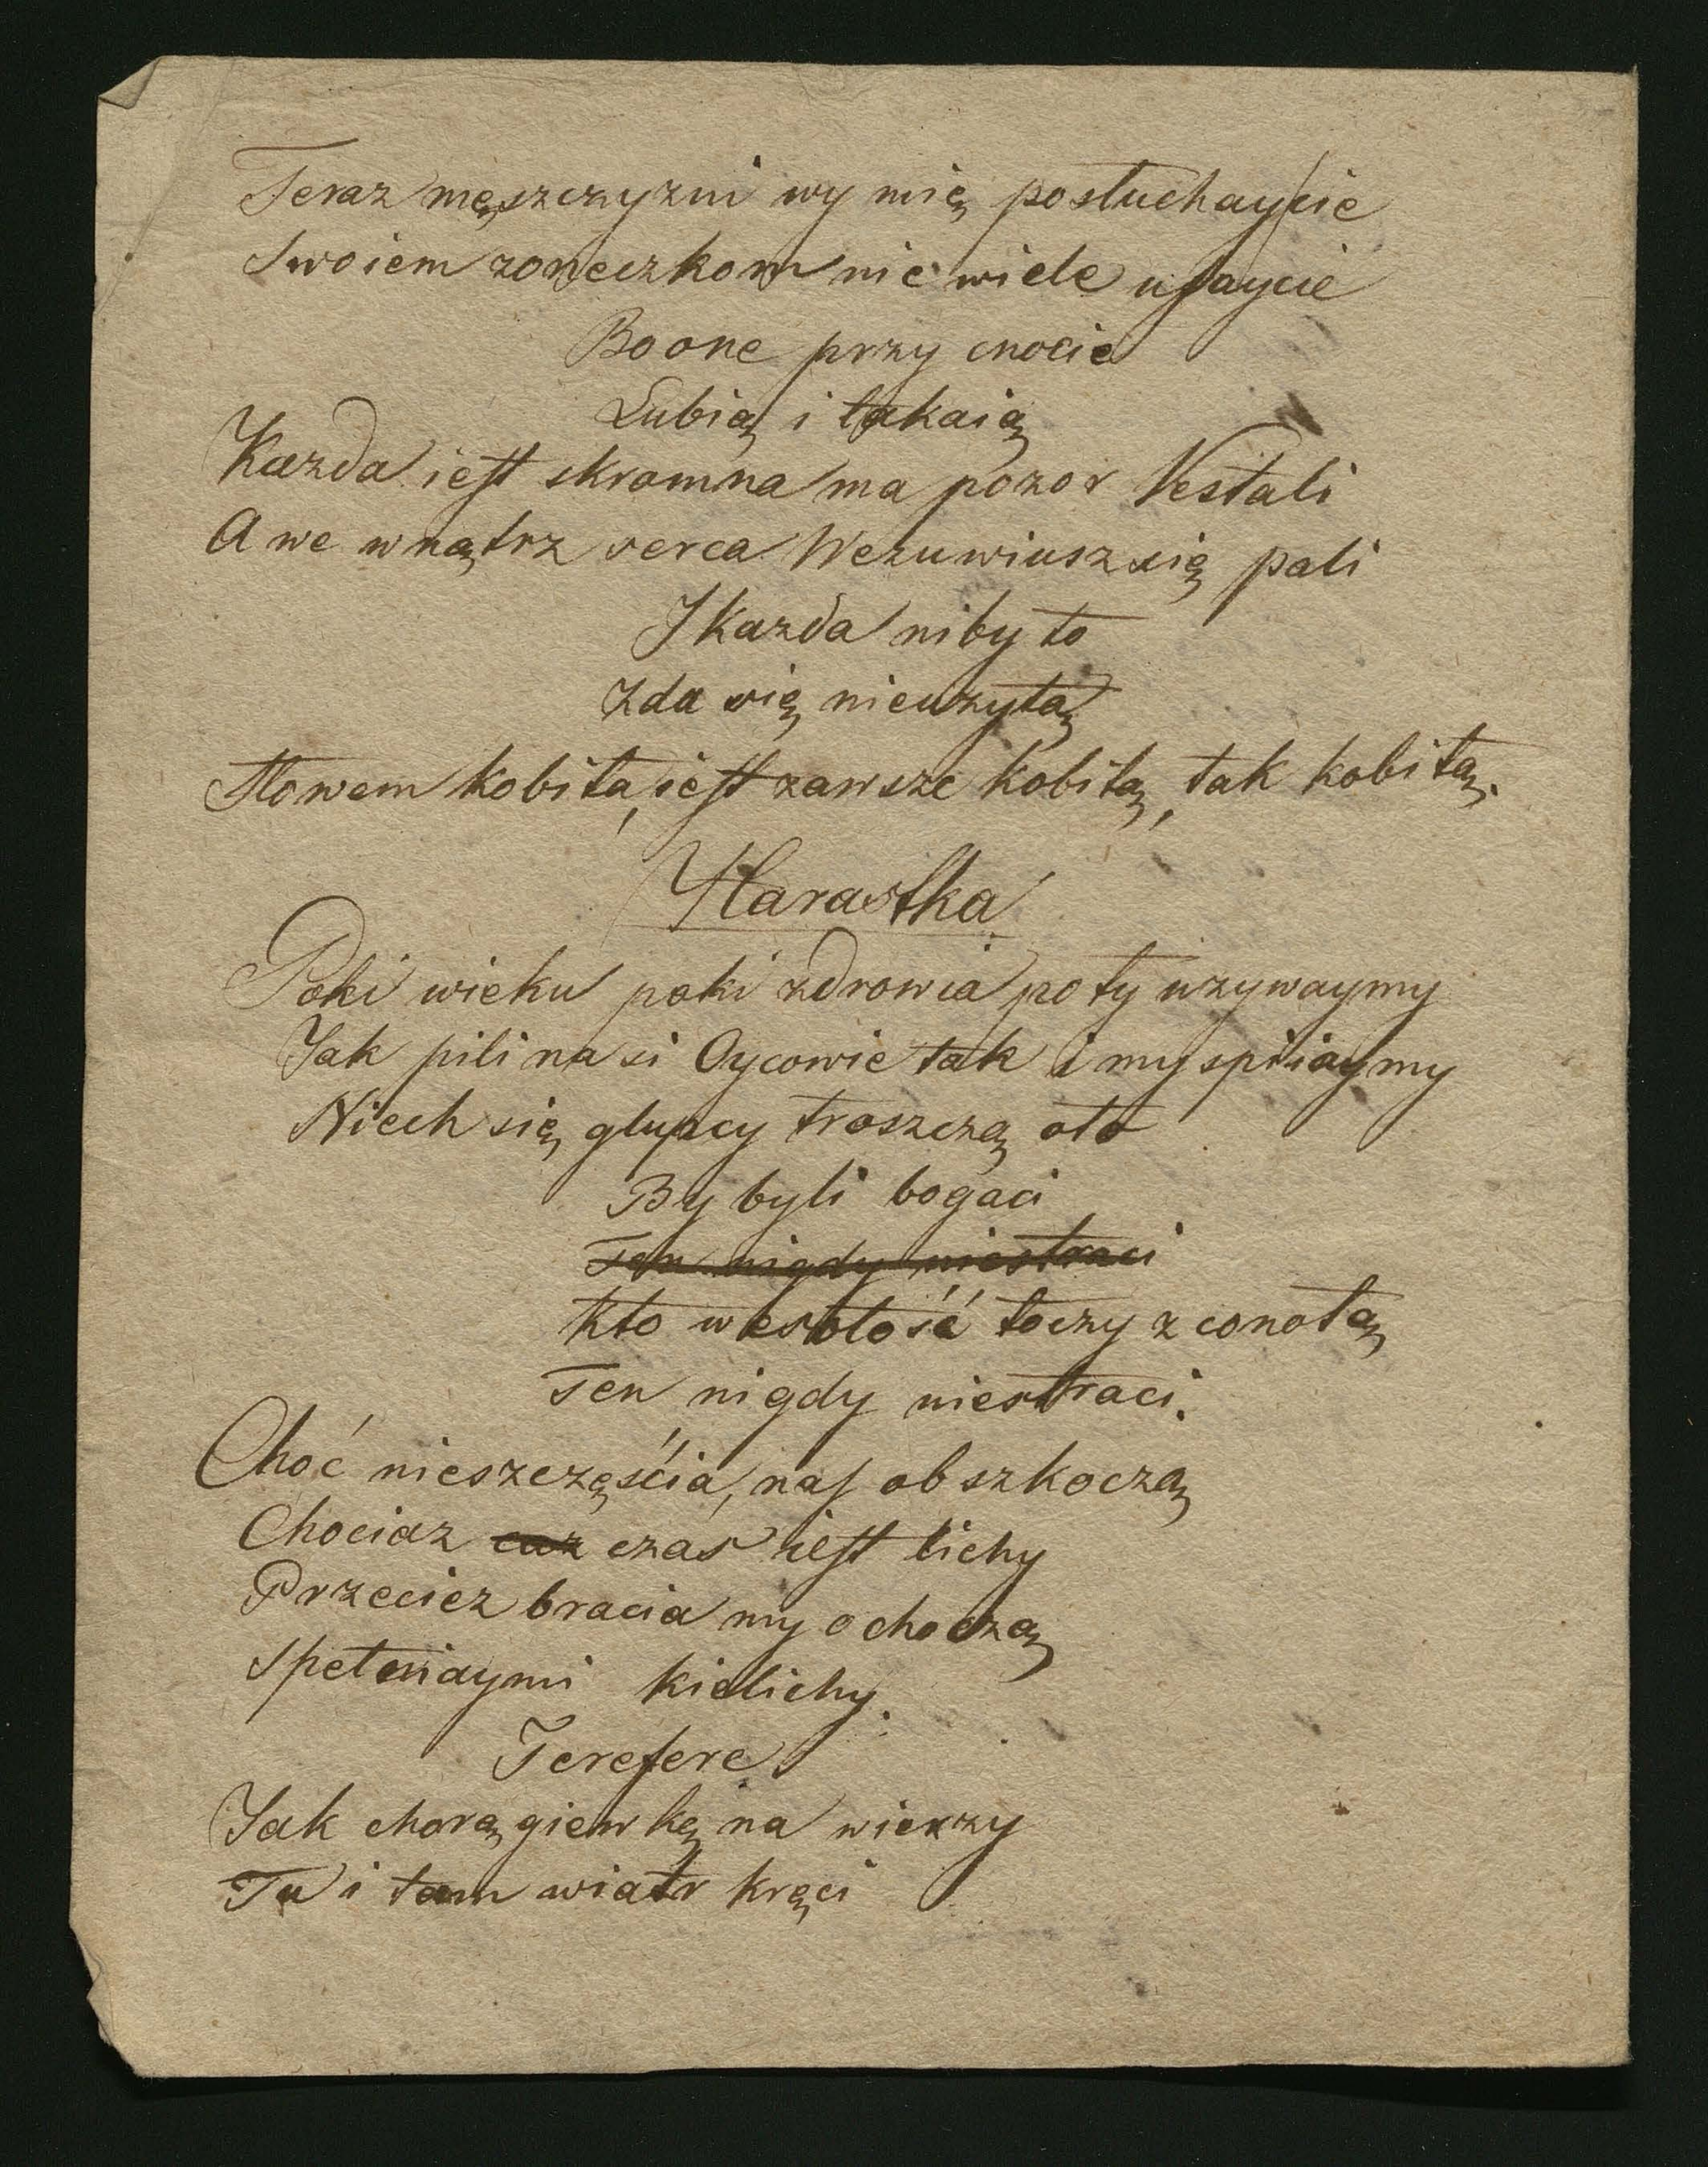 Teraz męszczyzni wy mię posłuchaycie
Swoiem zoneczkom nie wiele ufaycie
Bo one przy cnocie
Lubią i łakaią
Kazda iest skromna ma pozor Vestali
A we wnątrz serca Wezuwiusz się pali
I kazda niby to
Zda się nieuzytą
Słowem kobita, iest zawsze kobitą, tak kobitą.
Harastka
Poki wieku poki zdrowia poty uzywaymy
Jak pili nasi Oycowie tak i my spiiaymy
Niech się głupcy troszczą oto
By byli bogaci
Ten nigdy niestraci
Kto wesołość łoczy z conotą
Ten nigdy niestraci.
Choć nieszczęścia, nas obszkoczą
Chociaz caz czas iest lichy
Przeciez bracia my ochoczą
Spełniaymi kielichy.
Terefere
Jak chorągiewką na wierzy
Tu i tam wiatr kręci